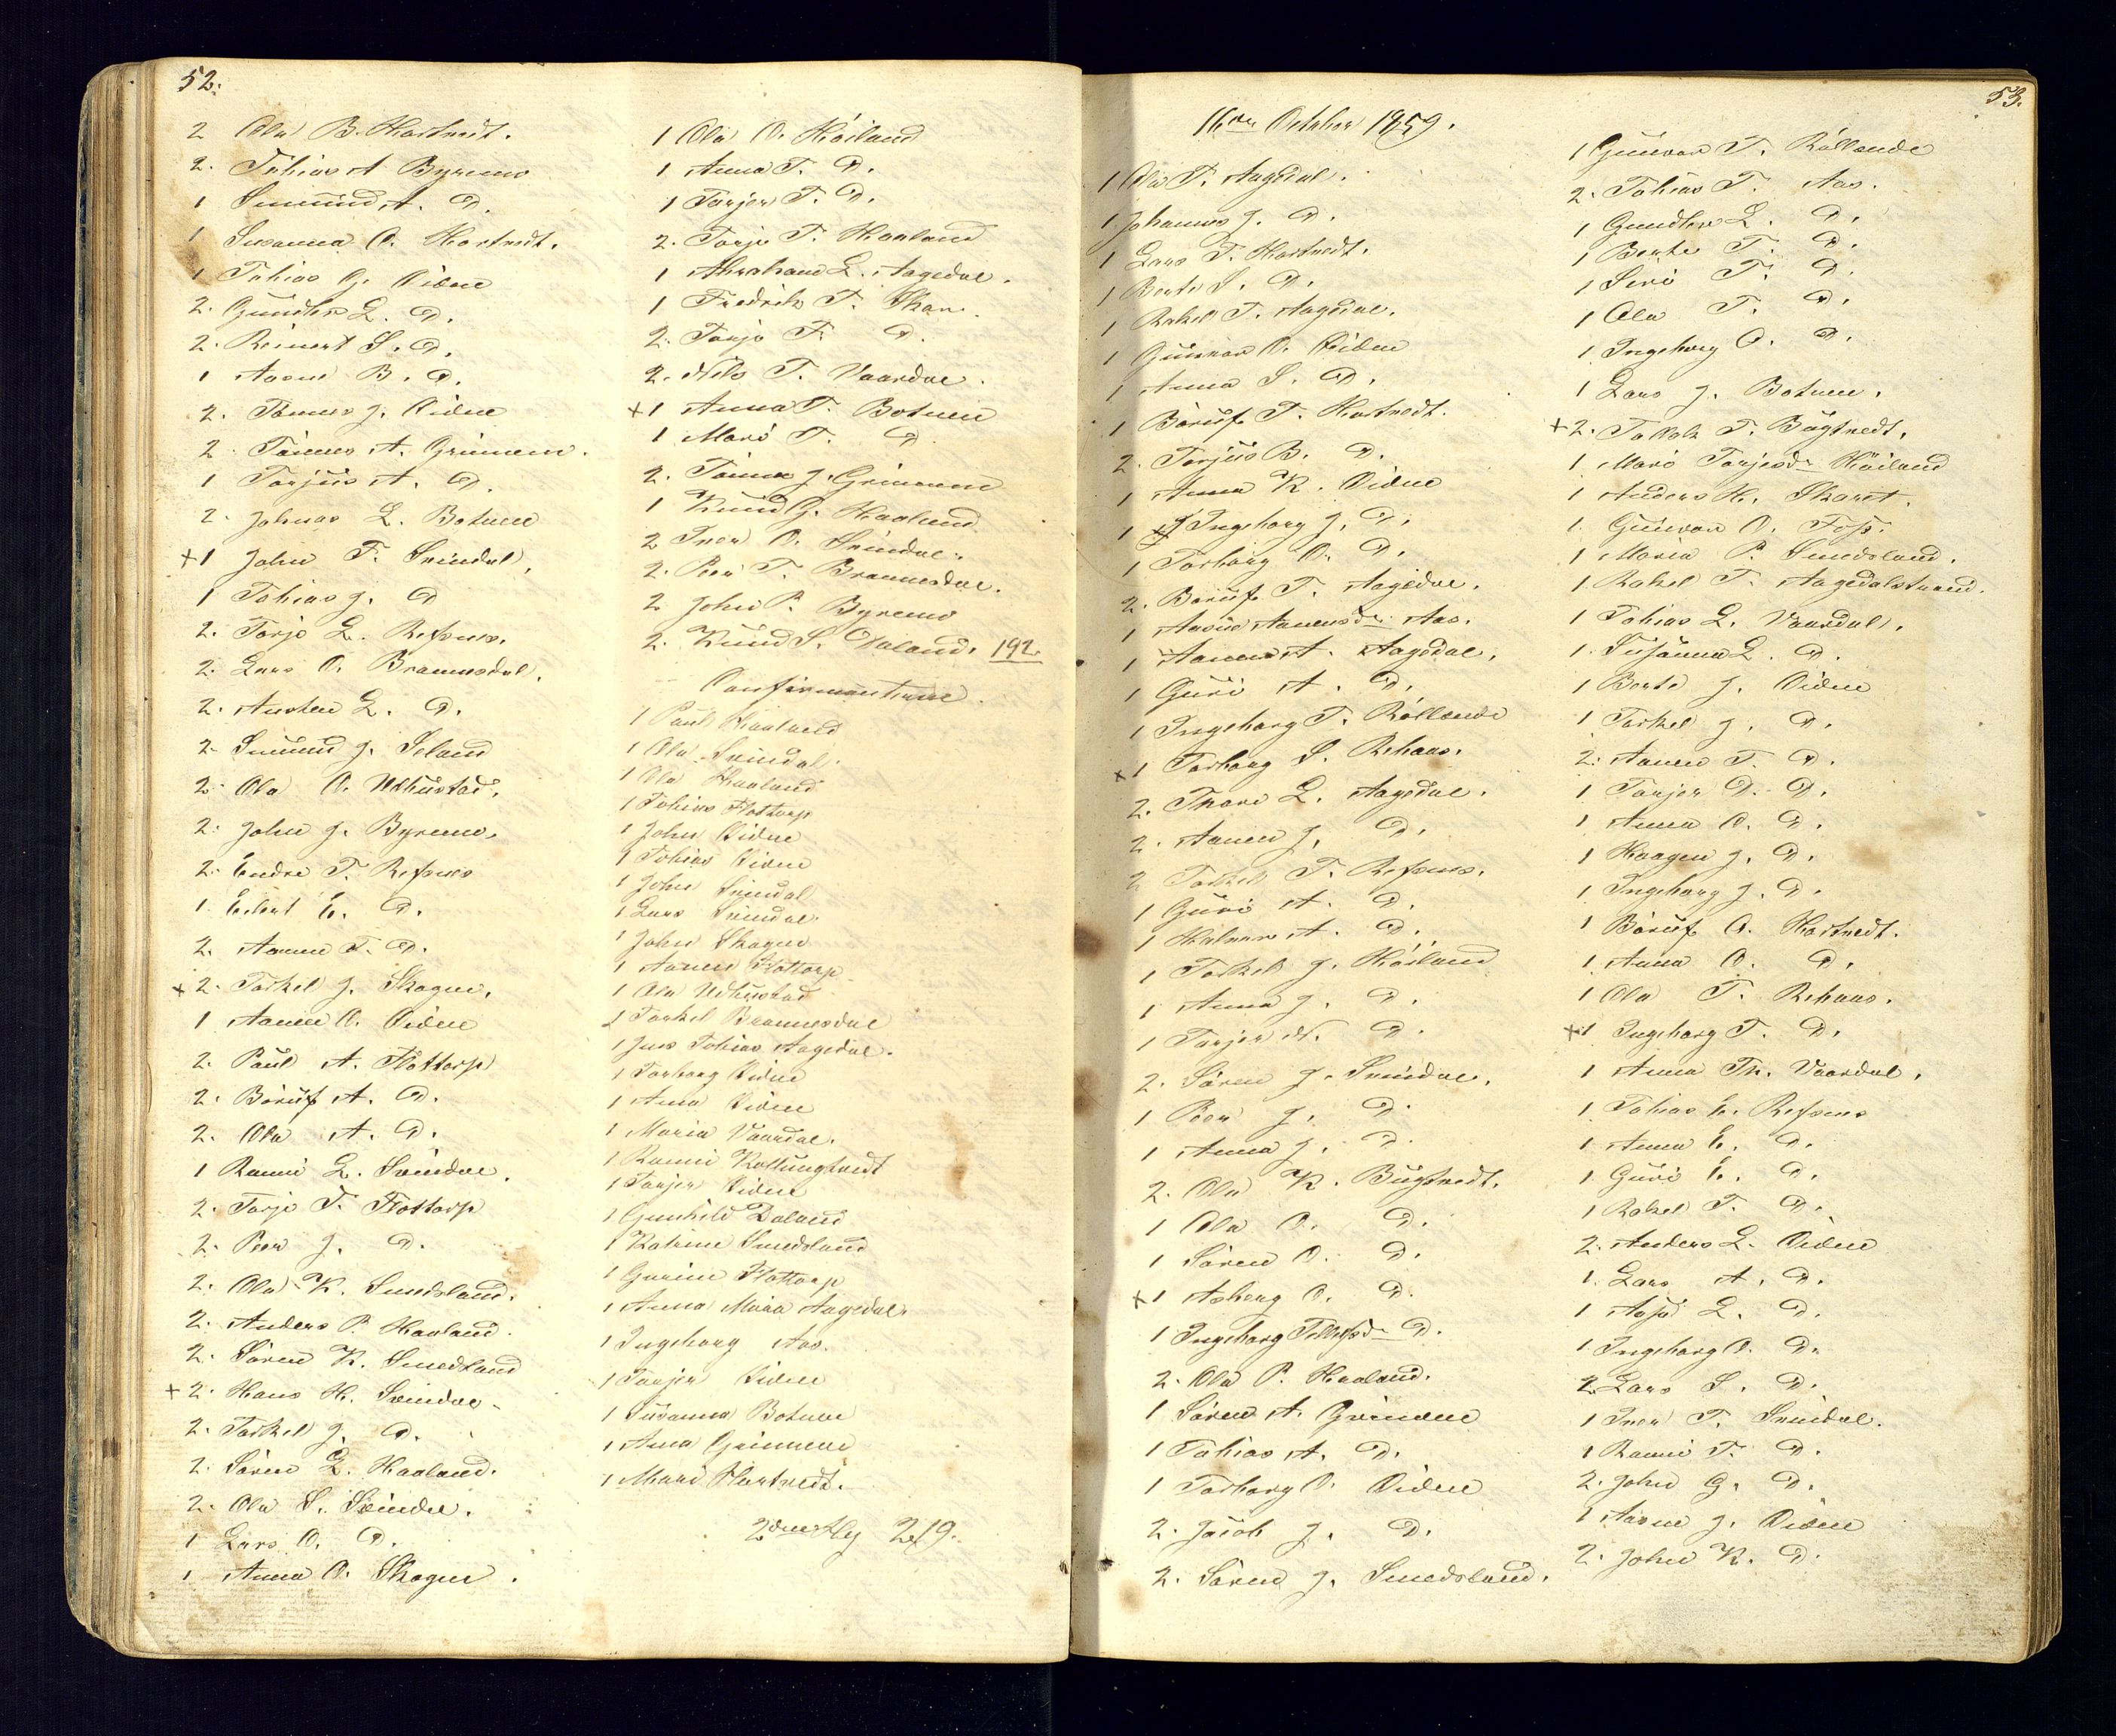 52.
2 Ola B. Hortvedt.
2. Tobias A Byremo
1 Smuind A. D.
1 Susanna O. Hortvedt.
1 Tobias G. Eidne
2. Gundler L. D.
2. Reinert S. D.
1 Aasne B. D.
2. Tomes J. Eidne
2. Tönnes A. Grimnem.
1 Torjuis A. D.
2. Johnas L. Botnen
+1 John T. Svindal.
1 Tobias J. D
2. Torje L. Refsnes.
2. Lars O. Brannesdal.
2. Austen L. D.
2. Smuind J. Seland
2. Ola O. Udhustad.
2. John J. Byremo.
2. Endre T. Refsnes
1. Eilert E. D.
2. Aanen T. D.
+2. Torkel J. Skogen.
1 Aanen O. Eidne
2. Paul A. Flottorp
2. Börüf A. D.
2. Ola A. D.
1 Rannei L. Svindal.
2. Torje T. Flottorp
2. Peer J. D.
2. Ola K. Smedsland.
2. Anders P. Haaland.
2. Sören K. Smedsland
+2. Hans H. Svindal.
2. Torkel J. D.
2. Sören L. Haaland.
2. Ola S. Svindal.
1 Lars O. D.
1. Anna O. Skogen.
1 Ola O. Höiland
1 Anna T. D.
1 Torjer T. D.
2. Torje T. Haaland
1 Abraham L. Aagedal.
1 Fredrik T. Skar.
2. Torje F. D.
2. Nils T. Vaardal.
+1 Anna T. Botnen
1 Mari T. D
2. Tönnes J. Grimnem
1 Knud G. Haaland
2 Iver O. Svindal.
2. Peer T. Brannesdal.
2 John P. Byremo
2. Knud S. Ovaland. 192.
Confirmanterne.
1 Paul Haaland
1 Ola Svindal.
1 Ola Haaland
1 Tobias Flottorp
1 John Eidne
1 Tobias Eidne
1 John Svindal
1 Lars Svindal.
1 John Skogen
1 Aanen Flottorp
1 Ola Udhustad
1 Torkel Brannesdal
1 Jens Tobias Aagedal.
1 Torborg Eidne
1 Anna Eidne
1 Maria Vaardal.
1 Rannei Kollungtvedt
1 Torjer Eidne
1 Gunhild Daland
1 Katrine Smedsland
1 Gurine Flottorp
1 Anna Maria Aagedal.
1 Ingeborg Aas.
1 Torjer Eidne
1 Susanna Botnen
1 Anna Grimnem
1 Mari Hortvedt.
219.
53.
16de October 1859.
1 Ola T. Aagedal.
1 Johannes J. D.
1 Lars T. Hortvedt.
1 Berte S. D.
1 Rakel T. Aagedal.
1 Gunvor O. Eidne
1 Anna S. D.
1 Börüf T. Hortvedt.
2. Torjuis B. D.
1 Anna K. Eidne
1 Ingeborg J. D.
1 Torborg O. D.
2. Börüf T. Aagedal.
1 Aasne Aanensdr Aas.
1 Aanen A. Aagedal.
1 Guri A. D.
1 Ingeborg T. Röllende
+1 Torborg S. Rehaas.
2. Thore L. Aagedal.
2. Aanen J. D.
2 Torkel T. Refsnes.
1 Guri A. D.
1 Halvor A. D.
1 Torkel J. Höiland
1 Anna J. D.
1 Torjer N. D.
2. Sören J. Svindal.
1 Peer J. D.
1 Anna J. D.
2. Ola K. Bügtvedt.
1 Ola O. D.
1 Sören O. D.
+1 Asberg O. D.
1 Ingeborg Tellefsdr D.
2. Ola P. Haaland.
1 Sören A. Grimnem
1 Tobias A. D.
1 Torborg O. Eidne
2. Jacob J. D.
2. Sören J. Smedsland.
1 Gunvor T. Röllende
2. Tobias T. Aas.
1 Gundler L. D.
1 Berte T. D.
1 Siri T. D.
1 Ola T. D.
1 Ingeborg O. D.
1 Lars J. Botnen.
+2. Tollak T. Bügtvedt.
1 Mari Torjesdr Höiland
1 Anders H. Skaret.
1. Gunvor O. Foss.
1 Maria P. Smedsland.
1 Rakel T. Aagedalstrand.
1 Tobias L. Vaardal.
1. Susanna L. D.
1 Berte J. Eidne
1 Torkel J. D.
2. Aanen T. D.
1 Torjer D. D.
1 Anna O. D.
1 Haagen J. D.
1 Ingeborg J. D.
1 Börüf O. Hortvedt.
1 Anna O. D.
1 Ola T. Rehaas.
+1 Ingeborg T. D.
1 Anna Th. Vaardal.
1 Tobias E. Refsnes
1 Anna E. D.
1 Guri E. D.
1 Rakel T. D.
2. Anders L. Eidne
1. Lars A. D.
1 Aase L. D.
1 Ingeborg O. D.
2 Lars S. D.
1 Iver T. Svindal.
1 Rannei T. D.
2. John G. D.
1 Aasne J. Eidne
2. John K. D.